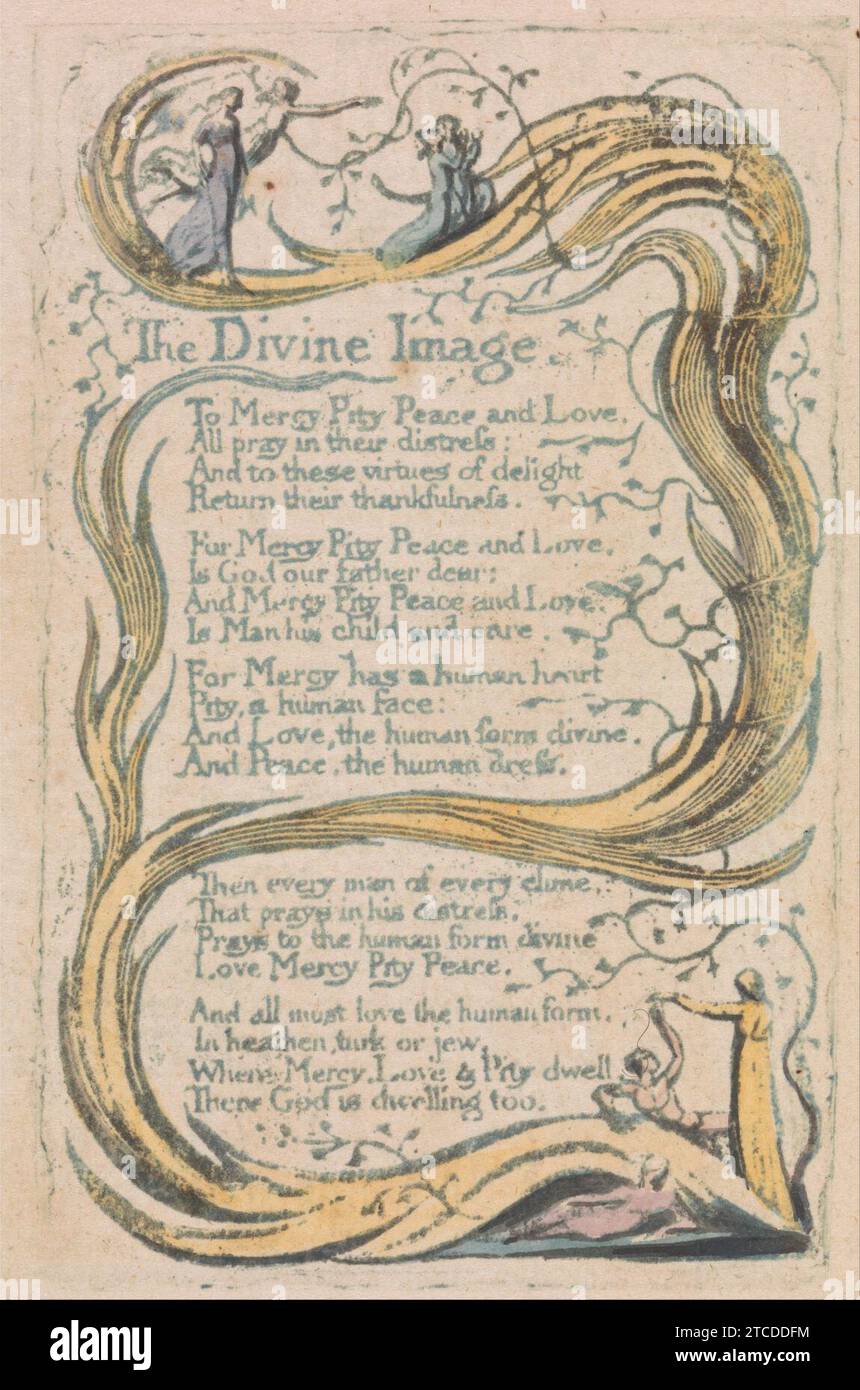 The Divine Image.
To Mercy Pity Peace and Love,
All pray in their distreſs:
And to these virtues of delight
Return their thankfulneſs.
For Mercy Pity Peace and Love,
Is God our father dear:
And Mercy Pity Peace and Love,
Is Man his child and care.
For Mercy has a human heart
Pity, a human face:
And Love, the human form divine,
And Peace, the human dreſs.
Then every man of every clime,
That prays in his distreſs,
Prays to the human form divine
Love Mercy Pity Peace.
And all must love the human form,
In heathen, turk or jew,
Where Mercy, Love & Pity dwell
There God is dwelling too.
alamy
Image ID: 2TCDDFM
www.alamy.com